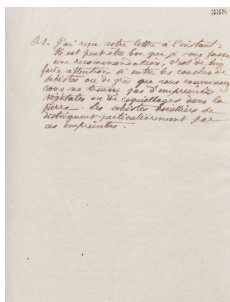 338
P.S. J'ai reçu votre lettre à l'instant:
Il est peut-être bon que je vous fasse
une recommandation, c'est de bien
faire attention si entre les couches de
schistes ou de grès que vous
vous ne trouvez pas d'empreintes
végétales ou de coquillages dans la
pierre. Les schistes houillers se
distinguent particulièrement par
ces empreintes.